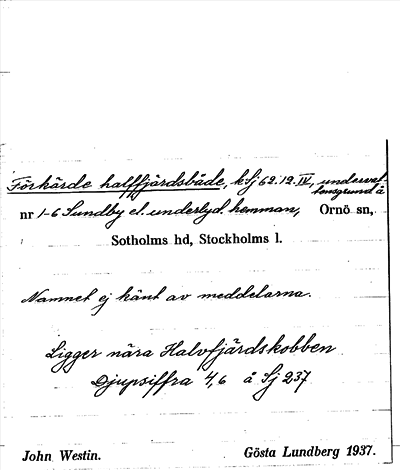 Förkärde halffjärdsbåde, kSj 62.12.IV, underval-
tensgrund å
nr 1-6 Sundby el. underlyd. hemman, Ornö sn,
Sotholms hd, Stockholms l.
Namnet ej känt av meddelarna.
Ligger nära Halvfjärdskobben
Djupsiffra 4,6 å Sj 237
John Westin. Gösta Lundberg 1937.